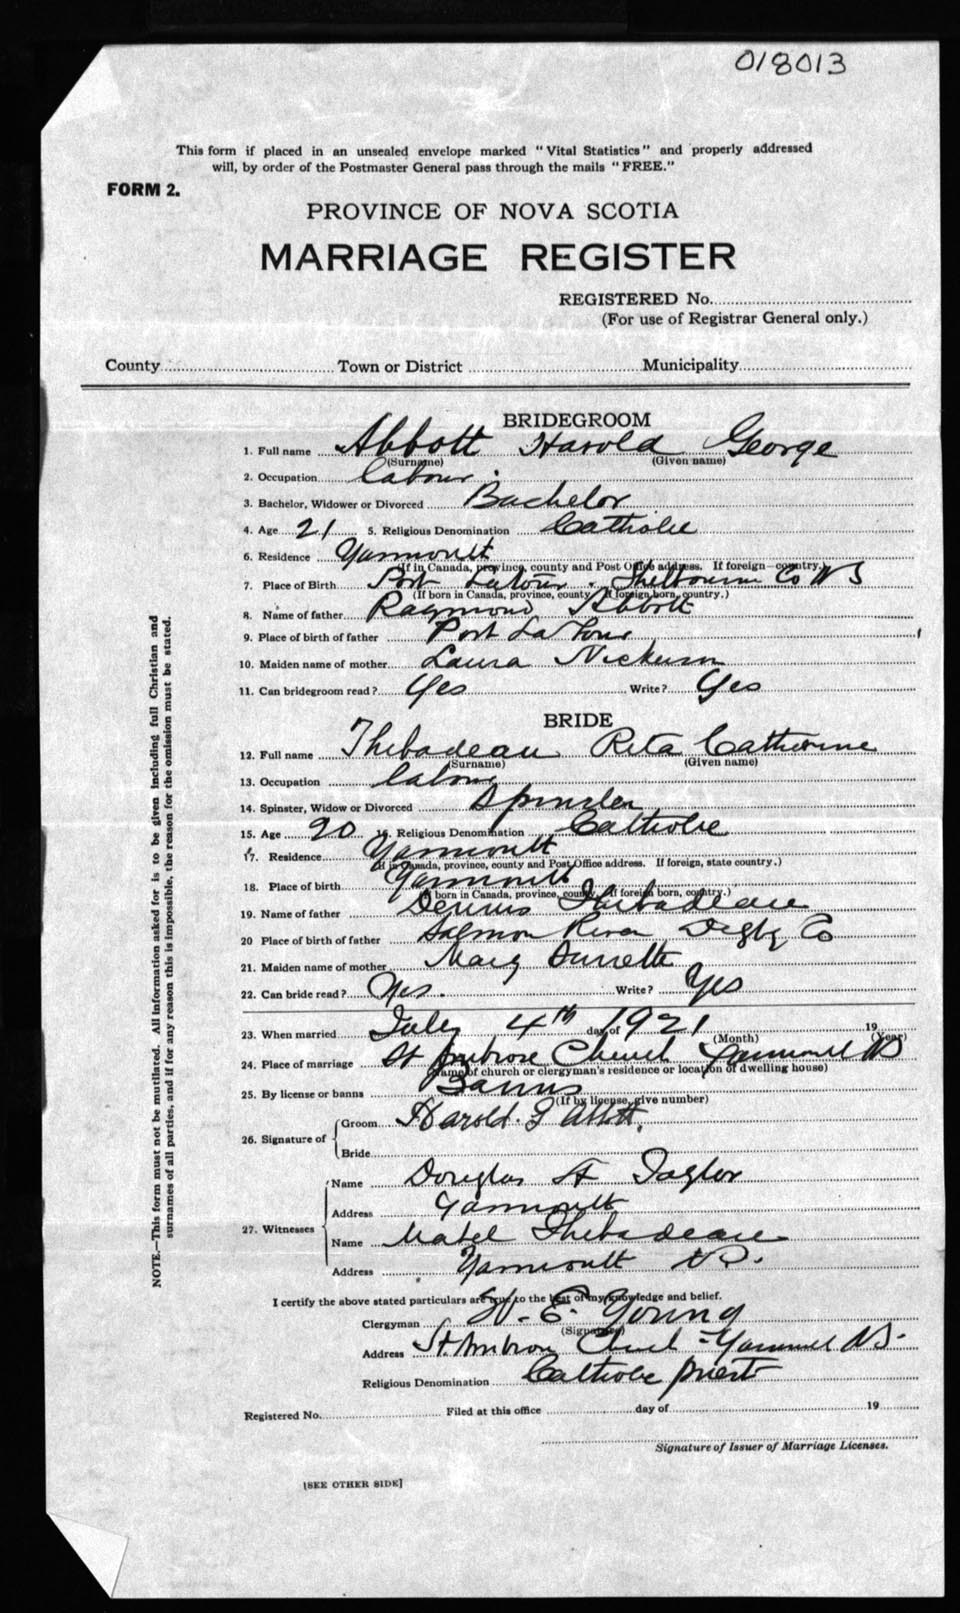 018013
This form if placed in an unsealed envelope marked "Vital Statistics" and properly addressed
will, by order of the Postmaster General pass through the mails "FREE."
FORM 2.
PROVINCE OF NOVA SCOTIA
MARRIAGE REGISTER
REGISTERED No.
(For use of Registrar General only.)
County Town or District Municipality
BRIDEGROOM
1. Full name Abbott Harold George
(Surname) (Given name)
2. Occupation Labour.
3. Bachelor, Widower or Divorced Bachelor
4. Age 21 5. Religious Denomination Catholic
6. Residence Yarmouth
(If in Canada, province, county and Post Office address. If foreign—country.)
7. Place of Birth Port Latour. Shelbourne Co NS
(If born in Canada, province, county. If foreign born, country.)
8. Name of father Raymond Abbott
9. Place of birth of father Port La Tour
10. Maiden name of mother Laura Nickerson
11. Can bridegroom read? Yes Write? Yes
BRIDE
12. Full name Thebadeau Rita Catherine
(Surname) (Given name)
13. Occupation Labour
14. Spinster, Widow or Divorced Spinster
15. Age 20 16. Religious Denomination Catholic
17. Residence Yarmouth
(If in Canada, province, county and Post Office address. If foreign, state country.)
18. Place of birth Yarmouth
(If born in Canada, province, county. If foreign born, country.)
19. Name of father Dennis Thebadeau
20 Place of birth of father Salmon River Digby Co
21. Maiden name of mother Mary Surrette
22. Can bride read? Yes. Write? Yes
23. When married July 4th day of 1921 19
(Month) (Year)
24. Place of marriage St Ambrose Church Yarmouth NS
(Name of church or clergyman's residence or location of dwelling house)
25. By license or banns Banns
(If by license, give number)
26. Signature of Groom Harold. G Abbott.
Bride
27. Witnesses Name Douglas A Taylor
Address Yarmouth
Name Mabel Thebadeau
Address Yarmouth NS.
I certify the above stated particulars are true to the best of my knowledge and belief.
Clergyman W. E. Young
(Signature)
Address St. Ambrose Church - Yarmouth NS-
Religious Denomination Catholic priest
Registered No. Filed at this office day of 19
Signature of Issuer of Marriage Licenses.
[SEE OTHER SIDE]
NOTE.—This form must not be mutilated. All information asked for is to be given including full Christian and
surnames of all parties, and if for any reason this is impossible, the reason for the omission must be stated.